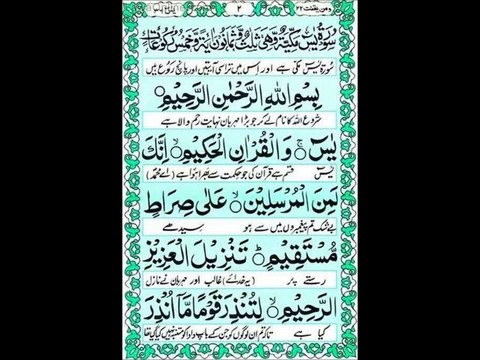 ومن یقنت ۲۲ ۲ یٰسٓ ۳۶
سُوْرَةُ يٰسٓ مَكِّيَّةٌ وَّهِيَ ثَلٰثٌ وَّثَمَانُوْنَ اٰيَةً وَّخَمْسُ رُكُوْعَاتٍ
سورۂ یٰسٓ مکی ہے اور اس میں تراسی آیتیں اور پانچ رکوع ہیں
بِسْمِ اللّٰهِ الرَّحْمٰنِ الرَّحِيْمِ
شروع اللہ کا نام لے کر جو بڑا مہربان نہایت رحم والا ہے
يٰسٓ ۚ وَالْقُرْاٰنِ الْحَكِيْمِ ۙ اِنَّكَ
یٰسٓ قسم ہے قرآن کی جو حکمت سے بھرا ہوا ہے (اے محمدؐ)
لَمِنَ الْمُرْسَلِيْنَ ۙ عَلٰى صِرَاطٍ
بے شک تم پیغمبروں میں سے ہو سیدھے
مُّسْتَقِيْمٍ ؕ تَنْزِيْلَ الْعَزِيْزِ
رستے پر (یہ خدائے) غالب اور مہربان نے نازل
الرَّحِيْمِ ۙ لِتُنْذِرَ قَوْمًا مَّاۤ اُنْذِرَ
کیا ہے تاکہ تم ان لوگوں کو جن کے باپ دادا کو متنبہ نہیں کیا گیا تھا